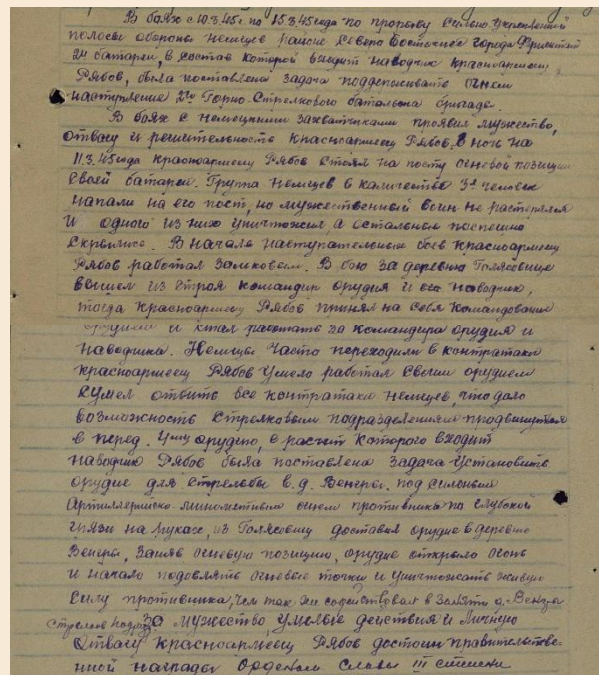 В боях с 10.3.45г по 15.3.45 года по прорыву сильно укрепленной
полосы обороны немцев районе Северо Восточнее города
2й батареи, в состав которой входит наводчик красноармеец
Рябов, была поставлена задача поддерживать огнем
наступление 2го Горно-Стрелкового батальона бригады.
В боях с немецкими захватчиками проявил мужество,
отвагу и решительность красноармеец Рябов. В ночь на
11.3.45 года красноармеец Рябов стоял на посту огневой позиции
своей батареи. Группа немцев в количестве 3х человек
напали на его пост, но мужественный воин не растерялся
и одного из них уничтожил, а остальные поспешно
скрылись. В начале наступательных боев красноармеец
Рябов работал замковым. В бою за деревню Голясовице
вышел из строя командир орудия и его наводчик,
тогда красноармеец Рябов принял на себя командование
орудием и стал работать за командира орудия и
наводчика. Немцы часто переходили в контратаки
красноармеец Рябов умело работал своим орудием
сумел отбить все контратаки немцев, что дало
возможность стрелковым подразделениям продвинуться
в перед. орудию, в расчет которого входит
наводчик Рябов была поставлена задача установить
орудие для стрельбы в д. Венгры. под сильным
Артиллерийско-минометным огнем противника по глубокой
грязи на руках, из Голясовиц доставил орудие в деревню
Венгры. Заняв огневую позицию, орудие открыло огонь
и начало подовлять огневые точки и уничтожать живую
силу противника, чем так же содействовал в занятие д. Венгры
стрелков. подразд. За мужество умелые действия и личную
отвагу красноармеец Рябов достоин правительстве-
нной награды Орденом Славы III степени